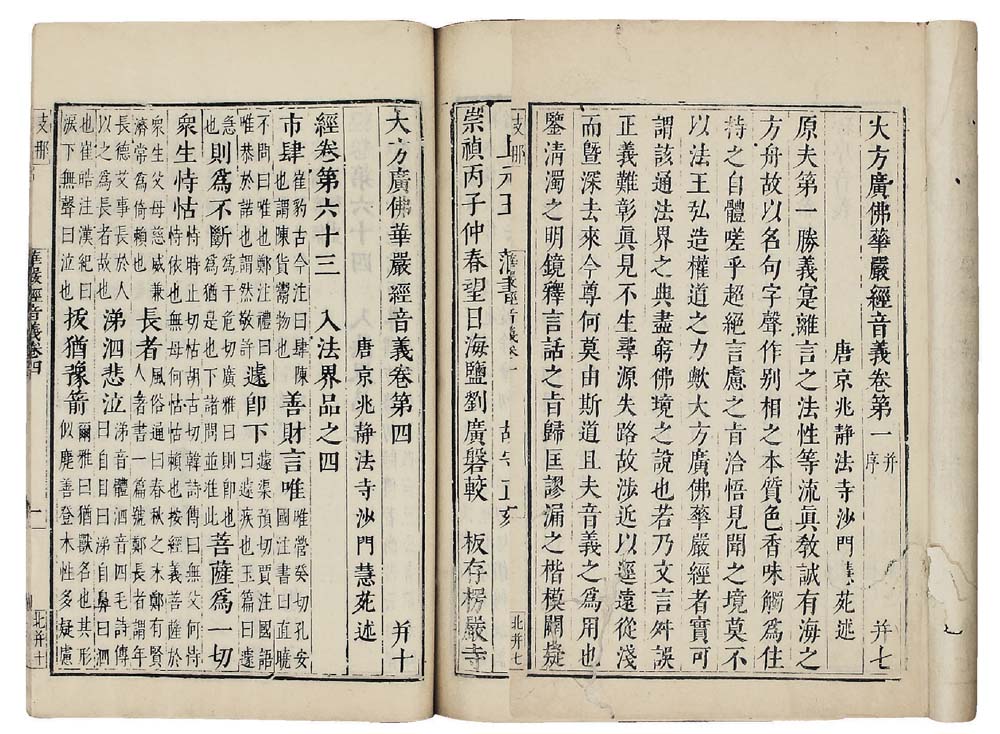 大方廣佛華嚴經音義卷第一 并序
唐京兆靜法寺沙門慧苑述 并七
原夫第一勝義寔離言之法性等流眞教誠有海之
方舟故以名句字聲作别相之本質色香味觸爲住
持之自體嗟乎超絕言慮之旨洽悟見聞之境莫不
以法王弘造權道之力歟大方廣佛華嚴經者實可
謂該通法界之典盡窮佛境之說也若乃文言舛誤
正義難彰眞見不生尋源失路故涉近以遥遠從淺
而曁深去來今尊何莫由斯道且夫音義之爲用也
鑒清濁之明鏡釋言話之旨歸匡謬漏之楷模闢疑
支那
北并七
崇禎丙子仲春望日海鹽劉廣磐較 板存楞嚴寺
大方廣佛華嚴經音義卷第四
唐京兆靜法寺沙門慧苑述 并十
經卷第六十三 入法界品之四
市肆 崔豹古今注曰肆陳也謂陳貨鬻物也 善財言唯 唯營癸切孔安國注書曰直曉
不問曰唯也鄭注禮曰唯恭於諾也謂然敬許 遽卽下 遽渠預切賈注國語曰遽疾也玉篇曰遽
急 則爲不斷 爲于危切廣雅曰則卽也謂卽猶是也下諸問並准此 菩薩爲一切
衆生恃怙 恃時止切怙胡古切韓詩傳曰無父何恃恃依也無母何怙怙賴也按經義菩薩於
衆生父母慈威兼濟常爲倚賴也 長者 風俗通曰春秋之末鄭有賢人者著書一篇號鄭長者謂年
長德艾事長於人以之爲長者故也 涕泗悲泣 涕音體泗音四毛詩傳曰自目曰涕自鼻曰泗
也崔皓注漢紀曰淚下無聲曰泣也 拔猶豫箭 爾雅曰猶獸名也其形似麂善登木性多疑慮
華嚴經音義卷四
北并十